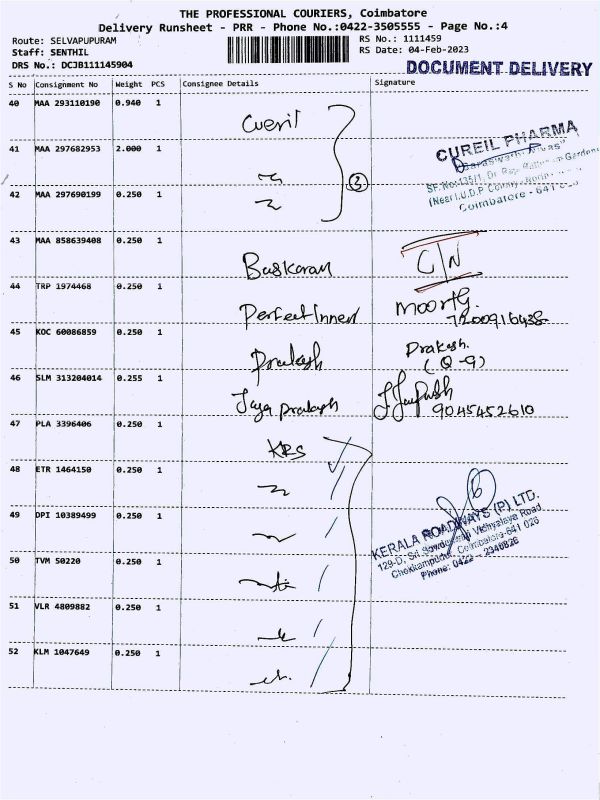 THE PROFESSIONAL COURIERS, Coimbatore
Delivery Runsheet - PRR - Phone No.:0422-3505555 - Page No.:4
Route: SELVAPUPURAM
RS No.: 1111459
Staff: SENTHIL
RS Date: 04-Feb-2023
DRS No.: DCJB111145904
DOCUMENT DELIVERY
S No Consignment No Weight PCS Consignee Details Signature
40 MAA 293110190 0.940 1 Cureil
41 MAA 297682953 2.000 1
CUREIL PHARMA
3
SF.No:135/1, Dr. Garden
Coimbatore - 641
42 MAA 297690199 0.250 1
43 MAA 858639408 0.250 1 Baskaran C/N
44 TRP 1974468 0.250 1 Perfect Innen Moorthy.
7200916438
45 KOC 60086859 0.250 1 Prakash Prakash.
(Q-9)
46 SLM 313204014 0.255 1 Jaya prakash
9045452610
47 PLA 3396406 0.250 1 KRS
48 ETR 1464150 0.250 1
49 DPI 10389499 0.250 1
KERALA ROADWAYS (P) LTD.
129-D, Sri Gowdeswari Vidhyalaya Road
Chokkampudur, Coimbatore-641 026
Phone: 0422 - 2346826
50 TVM 50220 0.250 1
51 VLR 4809882 0.250 1
52 KLM 1047649 0.250 1